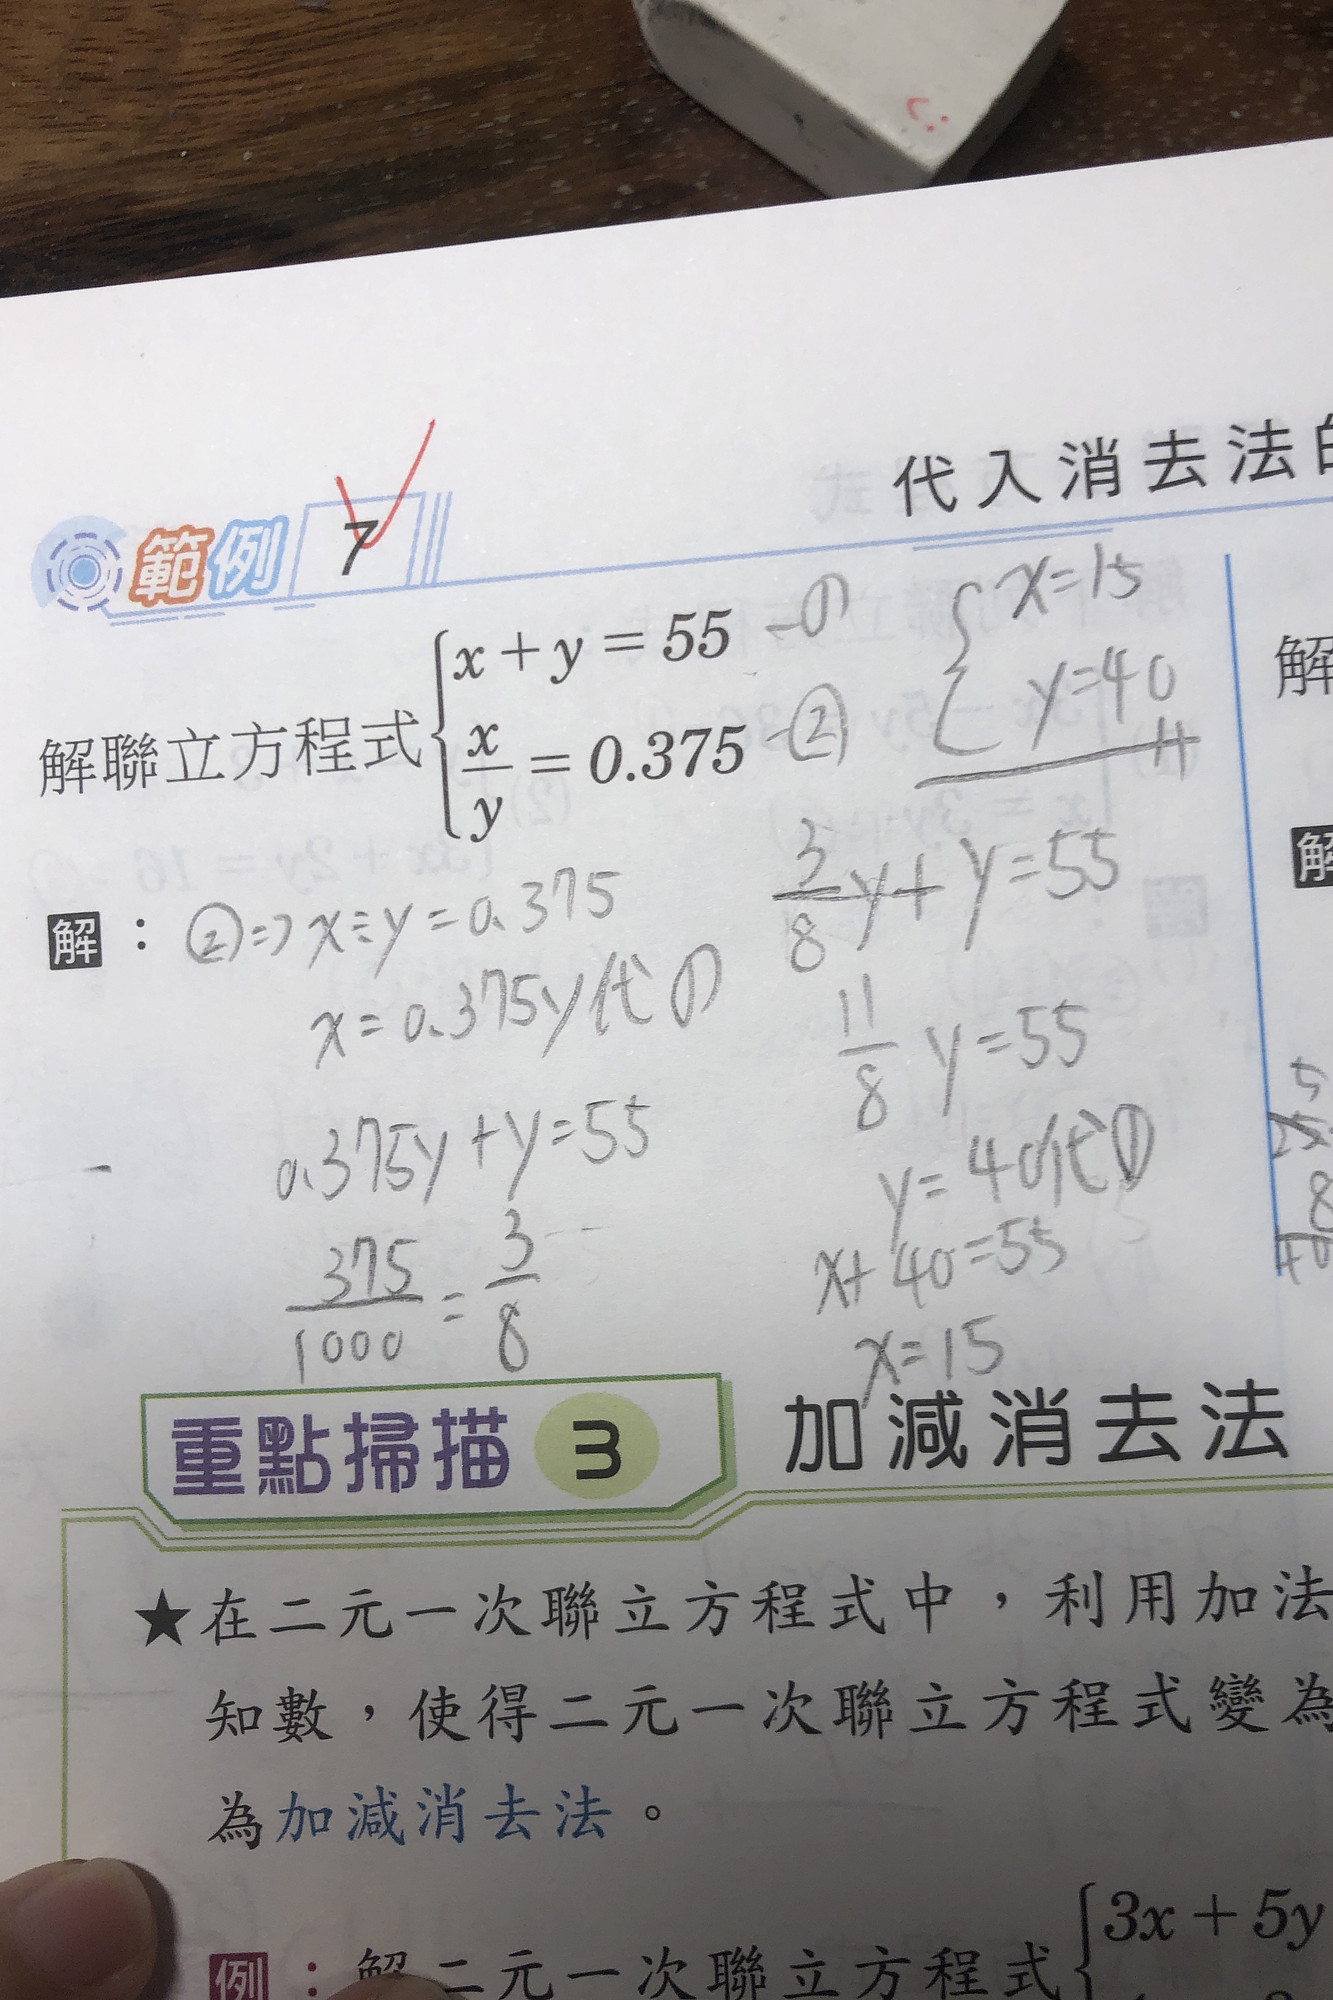 代入消去法的
範例 7
解聯立方程式
x + y = 55 -①
x/y = 0.375 -②
x=15
y=40
解：②=> x÷y=0.375
x=0.375y代①
0.375y+y=55
375/1000 = 3/8
3/8 y + y = 55
11/8 y = 55
y=40代①
x+40=55
x=15
解
解
重點掃描 3 加減消去法
★在二元一次聯立方程式中，利用加法
知數，使得二元一次聯立方程式變為
為加減消去法。
例：解二元一次聯立方程式 3x + 5y